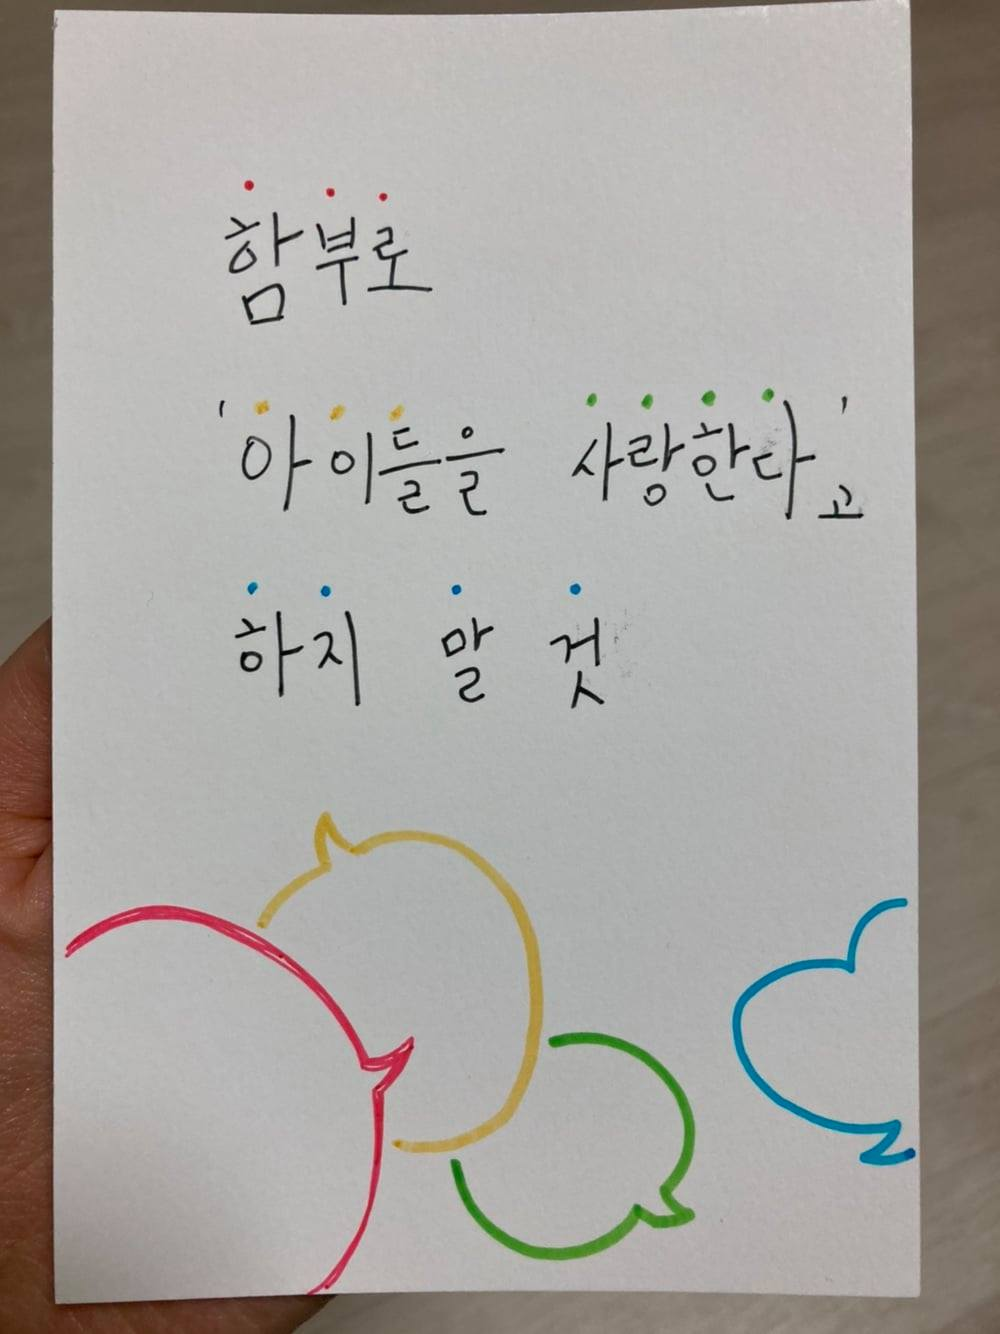 함부로
'아이들을 사랑한다'고
하지 말 것